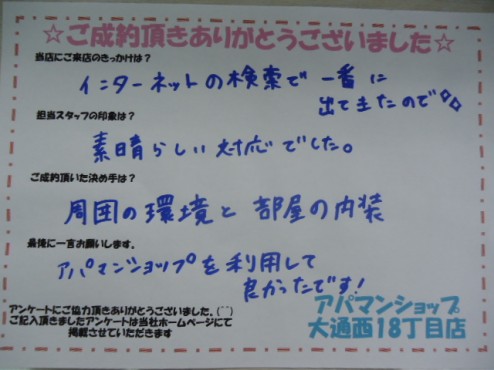 ☆ご成約頂きありがとうございました☆
当店にご来店のきっかけは？
インターネットの検索で一番に
出て来たので
担当スタッフの印象は？
素晴らしい対応でした。
ご成約頂いた決め手は？
周囲の環境と部屋の内装
最後に一言お願いします。
アパマンショップを利用して
良かったです!
アンケートにご協力頂きありがとうございました。(^^)
ご記入頂きましたアンケートは当社ホームページにて
掲載させていただきます
アパマンショップ
大通西18丁目店